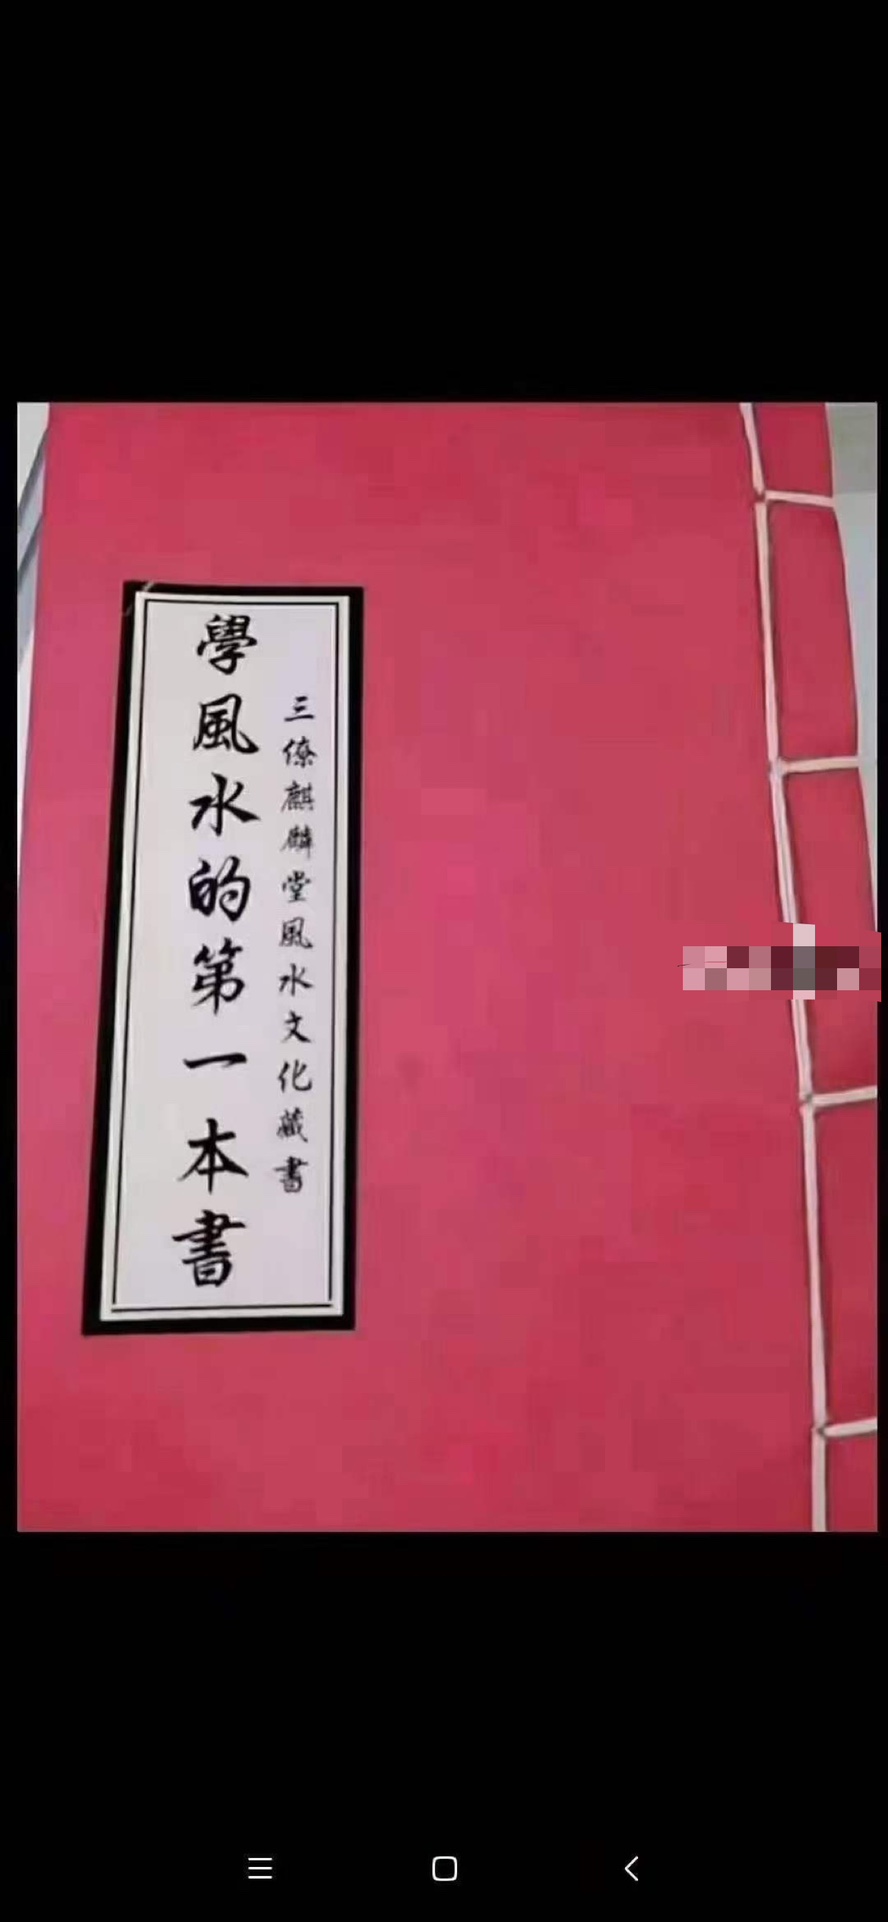 三僚麒麟堂風水文化藏書
學風水的第一本書